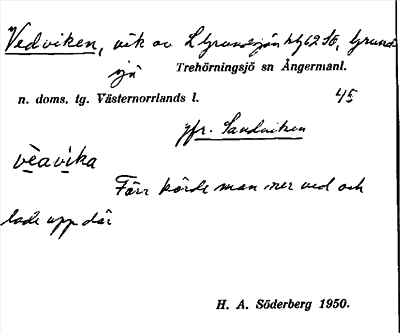 Vedviken, vik av L Grundsjön hbl 62 SO, Grund-
sjö Trehörningsjö sn Ångermanl.
n. doms. tg. Västernorrlands l. 45
jfr. Sandviken
vèavika
Förr körde man ner ved och
lade upp där
H. A. Söderberg 1950.